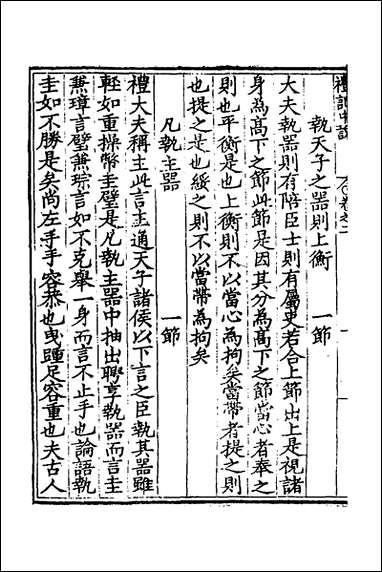 禮記中說 卷之二
執天子之器則上衡 一節
大夫執器則有陪臣士則有屬吏若合上節出上是視諸
身為高下之節此節是因其分為高下之節當心者奉之
則也平衡是也上衡則不以當心為拘矣當帶者提之則
也提之是也綏之則不以當帶為拘矣
凡執主器 一節
禮大夫稱主此言主通天子諸侯以下言之臣執其器雖
輕如重操幣圭璧是凡執主器中抽出聘享執器而言圭
兼璋言璧兼琮言如不克舉一身而言不止手也論語執
圭如不勝是矣尚左手手容恭也曳踵足容重也夫古人